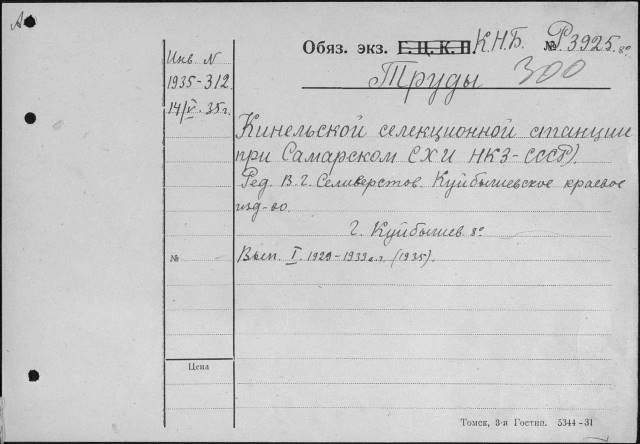 А
Обяз. экз. Г. Ц. К. П. К.Н.Б. № Р3925. 8º
Инв N
1935-312
14/V. 35г.
Труды 300
Кинельской селекционной станции
при Самарском СХИ НКЗ-СССР).
Ред. В. Г. Селиверстов. Куйбышевское краевое
изд-во.
г. Куйбышев 8º
№ Вып. I. 1929-1933 г.г. (1935).
Цена
Томск, 3-я Гостип. 5344-31